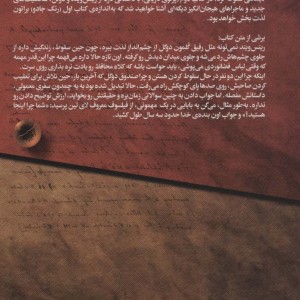 جدید و ماجراهای هیجان‌انگیز دیگه‌ای آشنا خواهید شد که به‌اندازه‌ی کتاب اول، «رنگ جادو» براتون
لذت بخش خواهد بود.
برشی از متن کتاب:
رینس‌ویند نمی‌تونه مثل رفیق گلمون دوگل از چشم‌انداز لذت ببره، چون حین سقوط، زندگیش داره از
جلوی چشم‌هاش رد می‌شه و جلوی میدان دیدش رو گرفته. اون تازه حالا داره می‌فهمه چرا این‌قدر مهمه
که وقتی لباس فضانوردی می‌پوشی، باید حواست باشه که کلاه محافظ رو یادت نره بذاری روی سرت.
اینکه چرا این دو نفر، حال سقوط کردن هستن و چرا صندوق دوگل که آخرین بار، حین تلاش برای تعقیب
کردن صاحبش، روی صدها پای کوچکش راه می‌رفت، حالا تبدیل شده بود به یه چمدون سفری معمولی،
داستانش مفصله. اما جواب دادن به چنین سوالاتی زمان بره و حقیقتش رو بخواید، ارزش توضیح دادن رو
نداره. به‌طور مثال، می‌گن یه بابایی در یک مهمونی، از فیلسوف معروف لای تین پرسید: «شما چرا اینجا
هستید؟» و جواب اون بنده‌ی خدا حدود سه سال طول کشید.